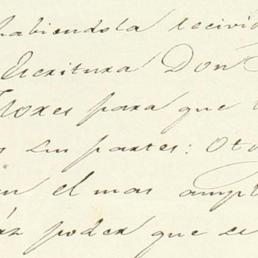 habiendola recivid
Escritura Don
Flores para que
s sus partes: Oto
n el mas ampl
poder que se